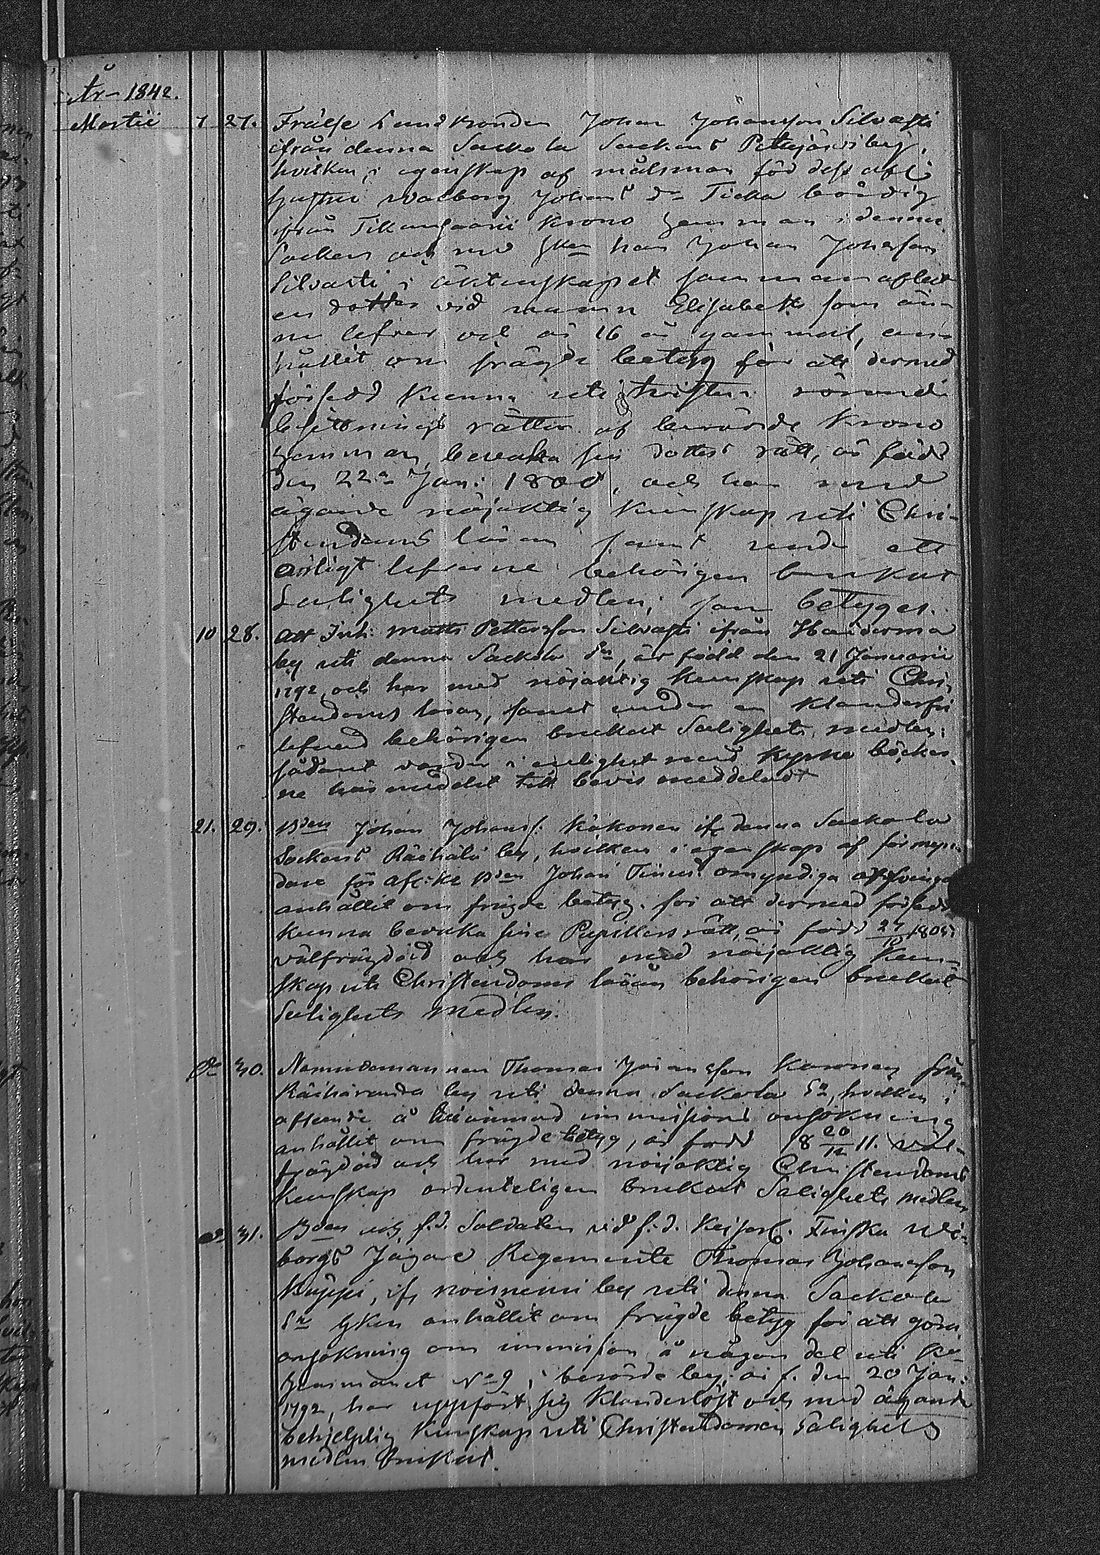 År 1842.
Martii 7 27. Frälse Landbonden Johan Johansson Silvasti
ifrån denna Sackola Sockens Petäjärvi by,
hvilken i egenskap af målsman för dess afl.
hustru Walborg Johans dr Ticka bördig
ifrån Tikansaari Krono hemman i denna
Socken och med hvilken han Johan Johansson
Silvasti i äktenskapet sammanaflat
en dotter vid namn Elisabeth som än-
nu lefver och är 16 år gammal, an-
hållit om frägde betyg för att dermed
försedd kunna uti tvisten rörande
besittnings rätten af berörde Krono
hemman, bevaka sin dotters rätt, är född
den 22a Jan: 1800, och har med
ägande nöjaktig kunskap uti Chri-
stendoms läran samt under ett
ärligt lefverne behörigen brukat
Salighets medlen; som betyges.
10 28. Att Inh: Matts Pettersson Silvasti ifrån
by uti denna Sackola Sn, är född den 21 Januarii
1792, och har med nöjaktig kunskap uti Chri-
stendoms läran, samt under en klanderfri
lefnad behörigen brukat Salighets medlen;
sådant varder i enlighet med Kyrko böcker-
ne härmedelst till bevis meddeladt
21. 29. Bden Johan Johanss. Käkönen ifr denna Sackola
Sockens Räihälä by, hvilken i egenskap af förmyn-
dare för aflidne Bden Johan omyndiga
anhållit om frägde betyg. för att dermed försedd
kunna bevaka sine Pupillers rätt, är född
välfrägdad och har med nöjaktig kun-
skap uti Christendoms läran behörigen brukat
Salighets medlen.
do 30. Nämndemannen Thomas Johansson från
Räihäranda by uti denna Sackola Sn, hvilken i
afseende å immissions ansökning
anhållit om frägde betyg, är född 18 20/12 11. väl-
frägdad och har med nöjaktig Christendoms
kunskap ordenteligen brukat Salighets medlen
do 31. Bden och f.d. Soldaten vid f.d. Keiserl. Finska Wi-
borgs Jägare Regemente Thomas Johansson
ifr by uti denna Sackola
Sn hvilken anhållit om frägde betyg för att göra
ansökning om immission å någon del uti Ko
hemmanet No 9, i berörde by, är f. den 20 Jan:
1792, har uppfört sig klanderlöst och med ägande
behjelplig kunskap uti Christendomen Salighets
medlen brukat.